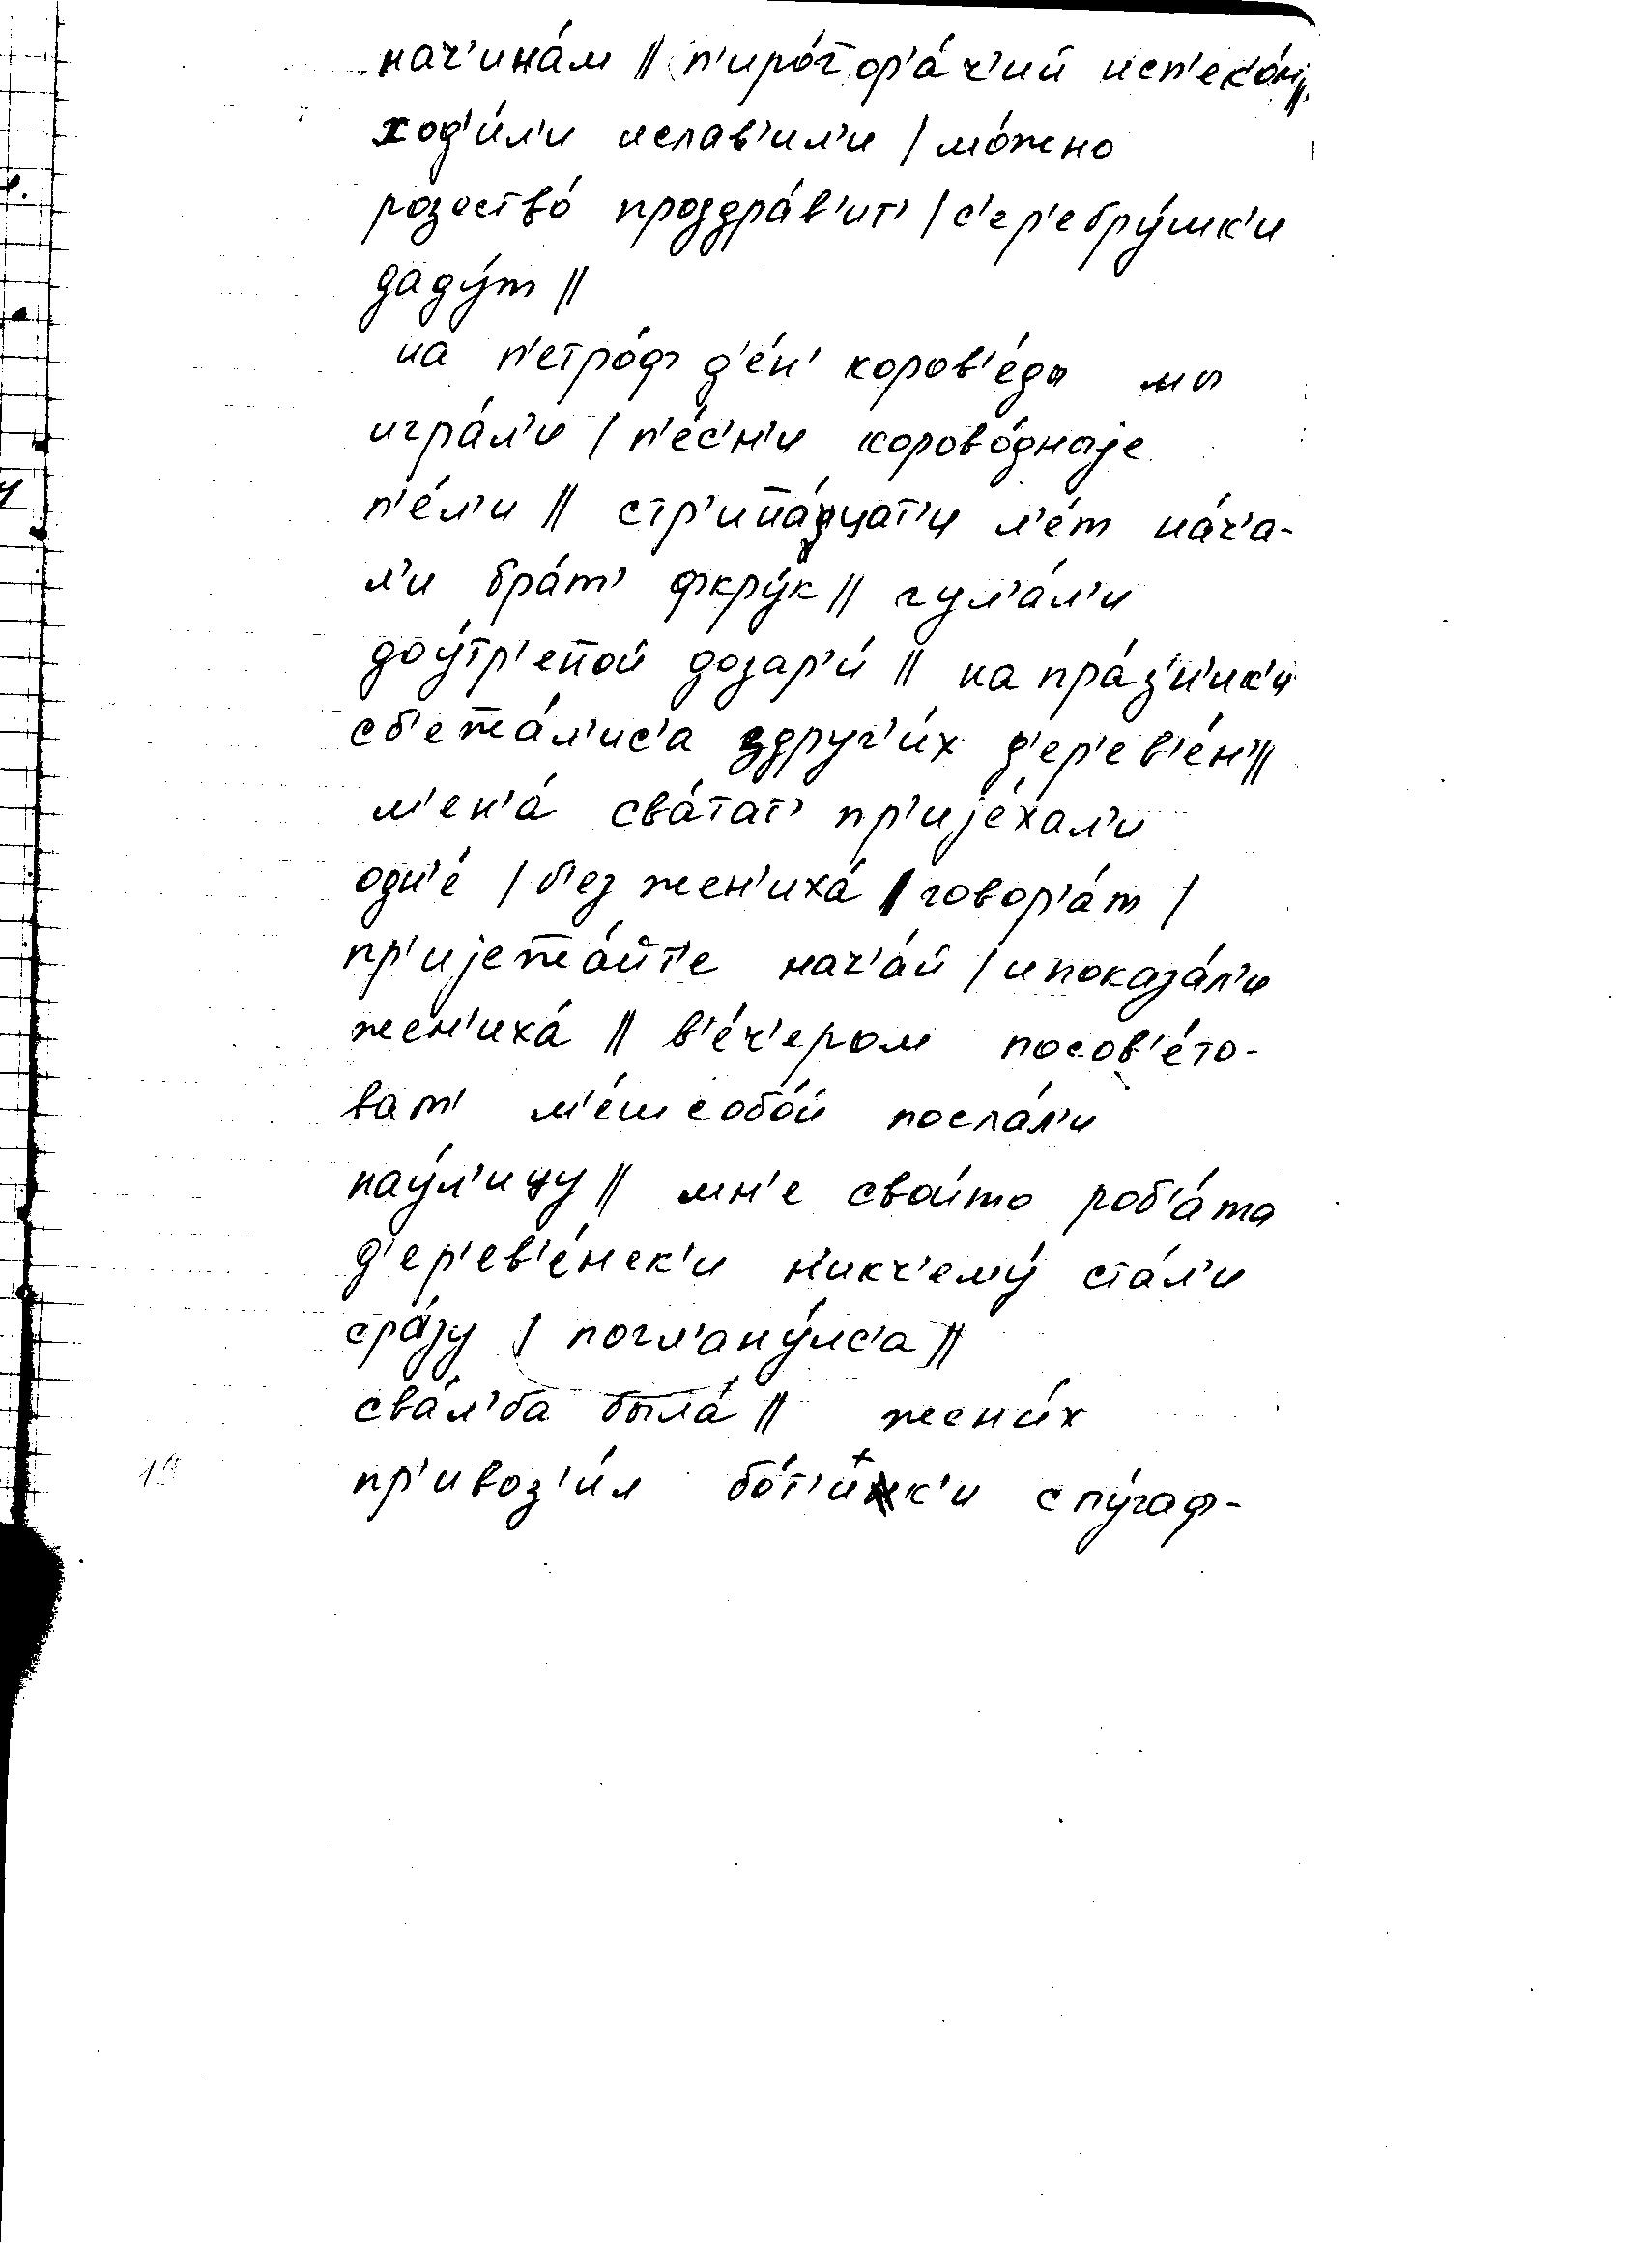 нач'ина́м || п'иро́г̅ор'а́ч'ий исп'ек'о́м ||
ход'и́л'и ислав'ил'и / мо́жно
розество́ проздра́в'ит' / с'ер'ебру́шк'и
даду́т ||
на п'етро́ф д'е́н' коров'е́ды мы
игра́л'и / п'е́с'н'и корово́дныjе
п'е́л'и || стр'ин̅а́цат'и л'е́т на́ч'а-
л'и бра́т' фкру́к || гул'а́л'и
доу́тр'ен̅ой дозар'и́ || на пра́з'н'ик'и
сб'еж̅а́л'ис'а здруг'и́х д'ер'ев'е́н' ||
м'ен'а́ сва́тат' пр'иjе́хал'и
одн'е́ / б'ез жен'иха́ / говор'а́т /
пр'иjеж̅а́йт'е нач'а́й / ипоказа́л'и
жен'иха́ || в'е́ч'ером посов'е́то-
ват' м'е́шсобо́й посла́л'и
нау́л'ицу || мн'е свои́то роб'а́та
д'ер'ев'е́нск'и н'икч'ему́ ста́л'и
сра́зу / погл'ану́лс'а ||
сва́л'ба была́ || жени́х
пр'ивоз'и́л бо́т'и́нк'и спу́гаф-
19